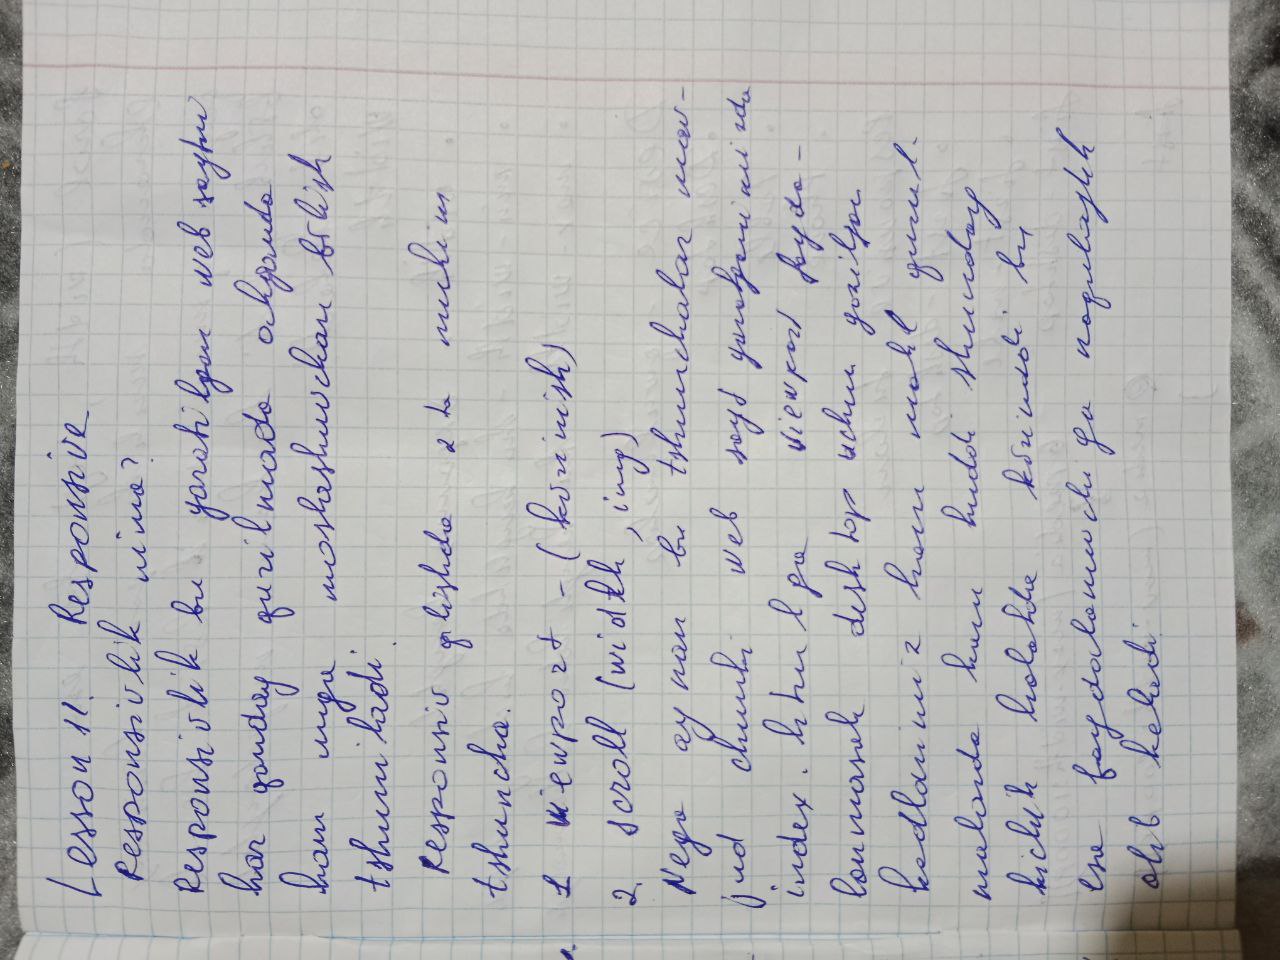 Lesson 11. Responsive
Responsivlik nima?
Responsivlik bu yaratilgan web saytni
har qanday qurilmada ochganda
ham unga moslashuvchan bõlish
tshuniladi.
Responsiv qlishda 2 ta muhim
tshuncha.
1 viewport - (kõrinish)
2 scroll (width, img)
Nega aynan bu tshunchalar mav-
jud chunki web sayt yaratganimizda
index.html ga viewport foyda-
lanmasak desktop uchun yozilgan
kodlarimiz ham mobil quril-
malarda ham hudi shunday
kichik holatda kõrinadi bu
esa foydalanuvchi ga noqulaylik
olib keladi.